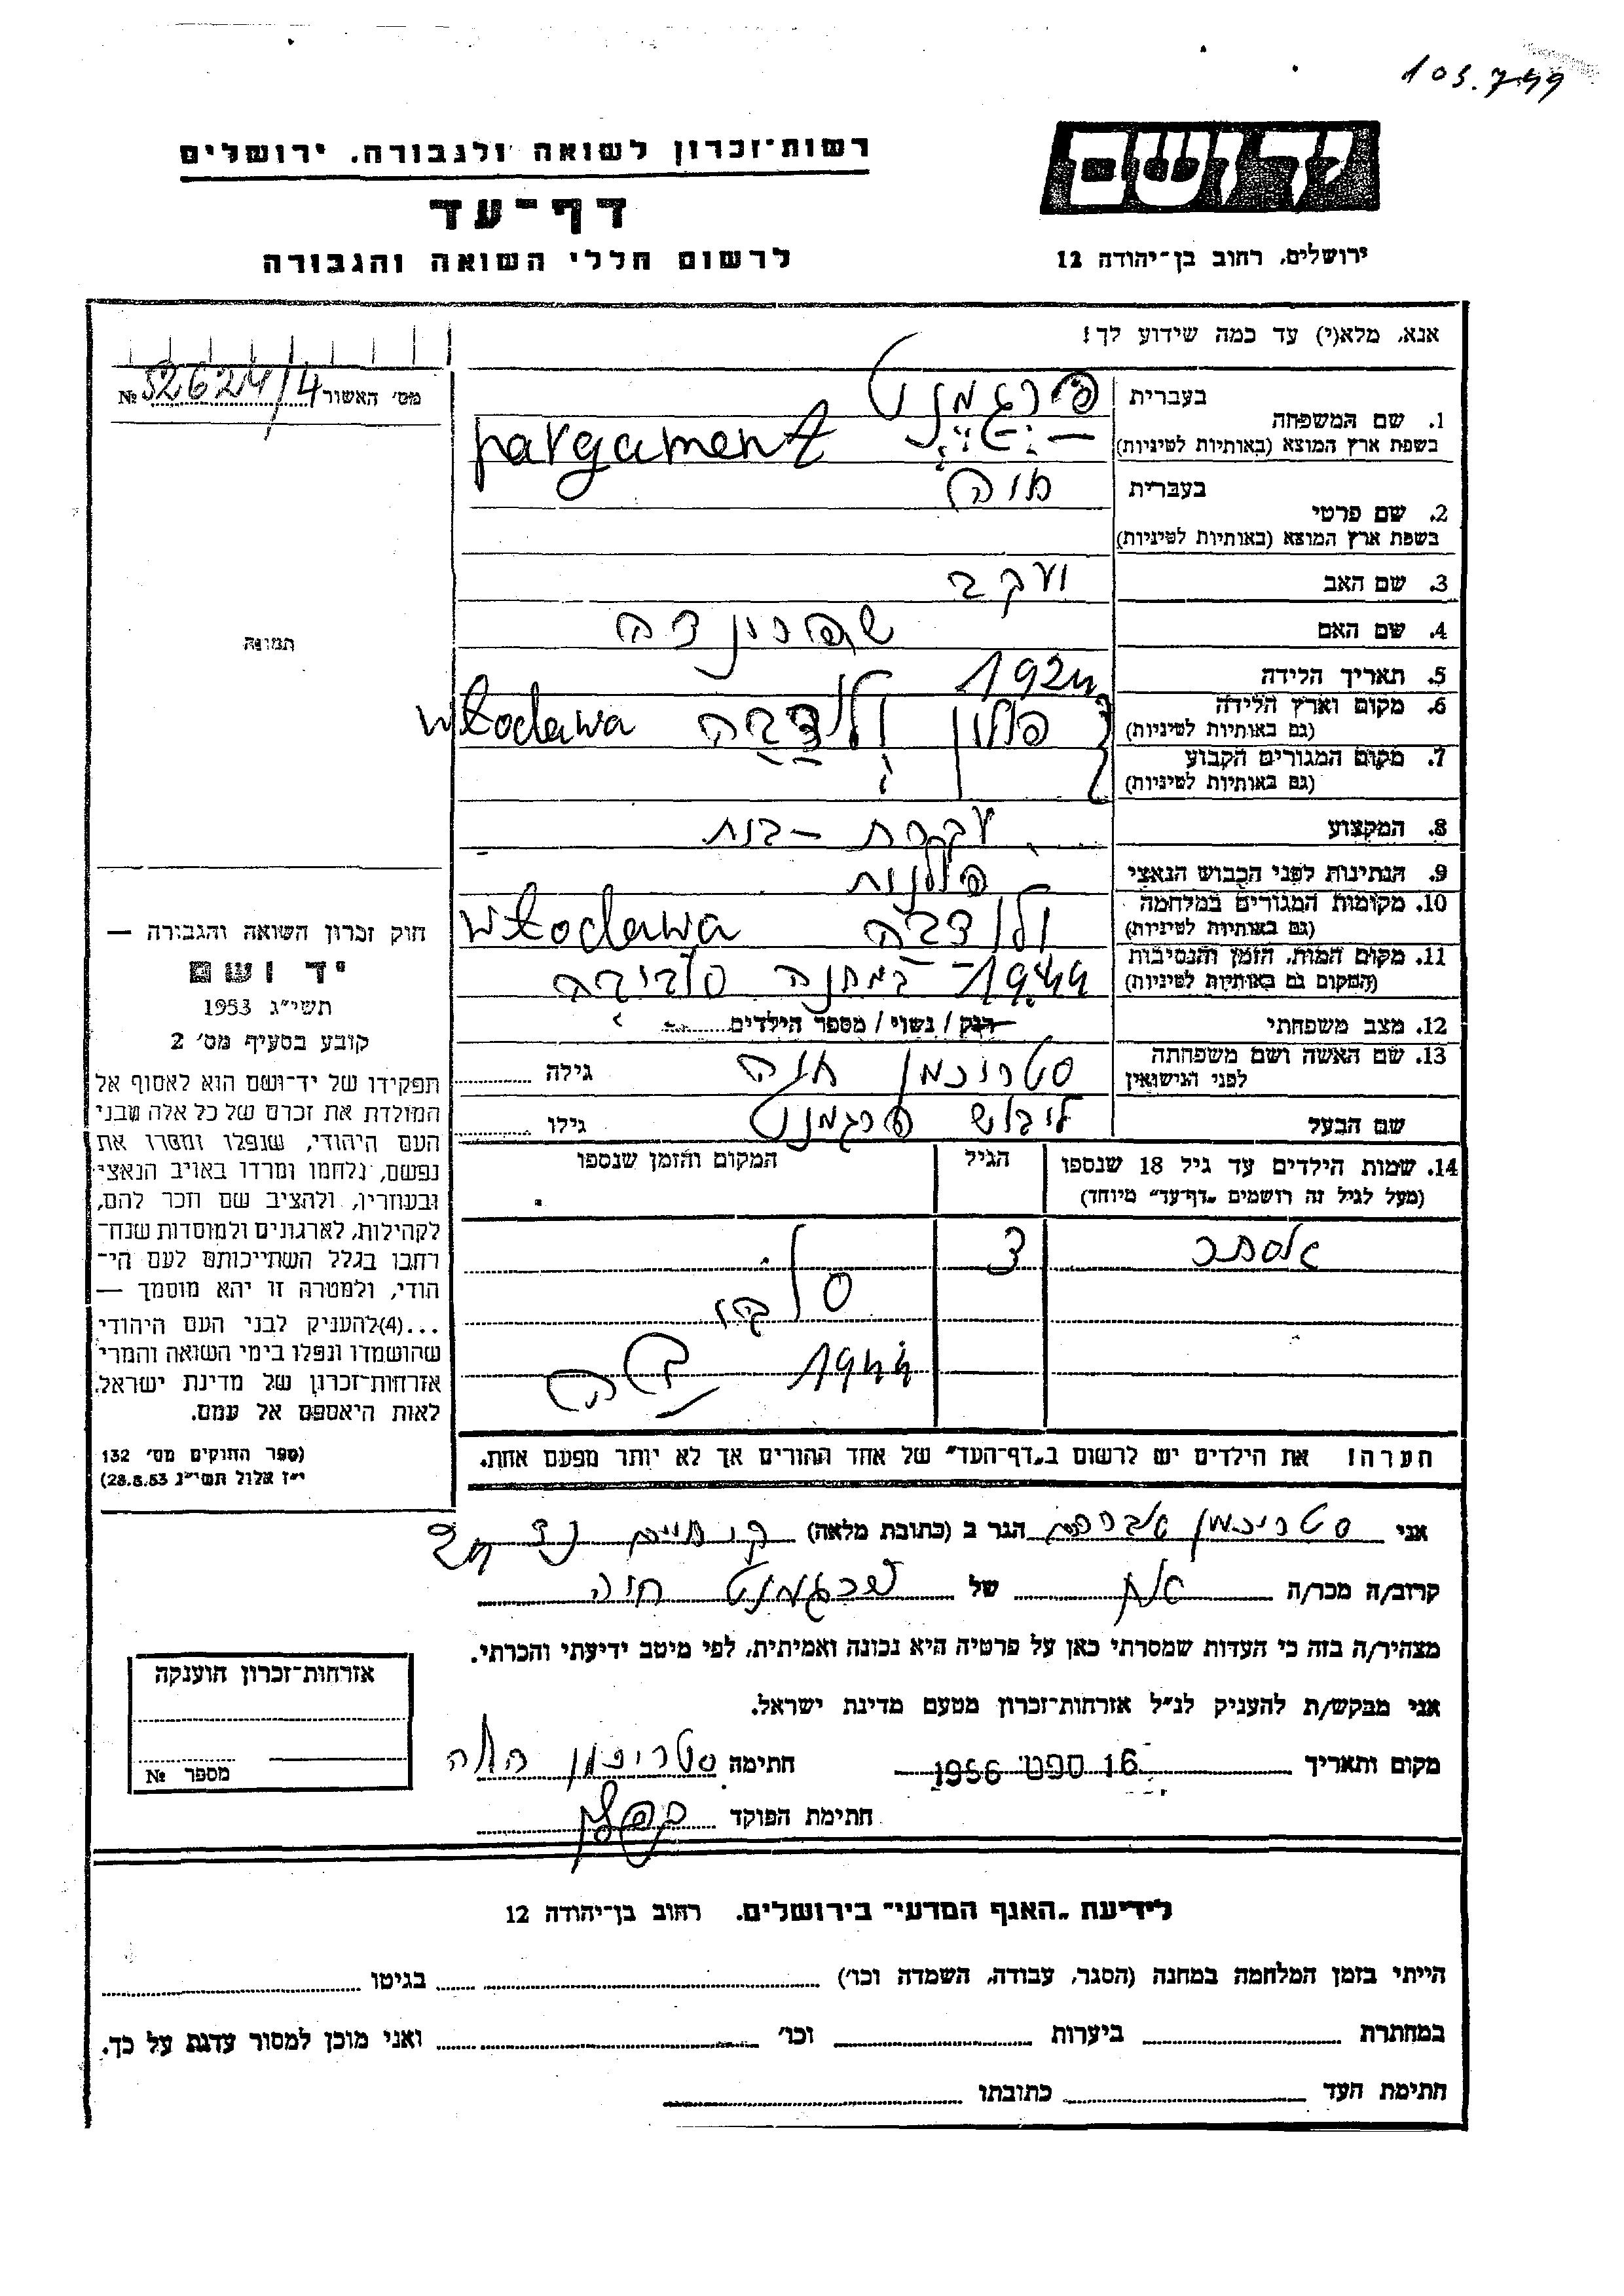 103.749
רשות־זכרון לשואה ולגבורה. ירושלים
דף־עד
לרשום חללי השואה והגבורה
יד ושם
ירושלים, רחוב בן־יהודה 12
אנא, מלא(י) עד כמה שידוע לך!
מס׳ האשור № 52624/4
1. שם המשפחה
בעברית פרגמנט
בשפת ארץ המוצא (באותיות לטיניות) pargament
2. שם פרטי
בעברית חוה
בשפת ארץ המוצא (באותיות לטיניות)
3. שם האב יעקב
4. שם האם
5. תאריך הלידה 1924
6. מקום וארץ הלידה
(גם באותיות לטיניות) פולין ולודבה włodawa
7. מקום המגורים הקבוע
(גם באותיות לטיניות)
8. המקצוע עקרת - בית
9. הנתינות לפני הכבוש הנאצי פולנית
10. מקומות המגורים במלחמה
(גם באותיות לטיניות) ולודבה włodawa
11. מקום המות, הזמן והנסיבות
(המקום גם באותיות לטיניות) 1944 - במחנה סוביבה
12. מצב משפחתי רוק / נשוי / מספר הילדים
13. שם האשה ושם משפחתה
לפני הנישואין סטריכמן חוה גילה
שם הבעל ליבוש פרגמנט גילו
14. שמות הילדים עד גיל 18 שנספו
(מעל לגיל זה רושמים „דף־עד״ מיוחד)
הגיל
המקום והזמן שנספו
אסתר
1944
הערה! את הילדים יש לרשום ב„דף־העד״ של אחד ההורים אך לא יותר מפעם אחת.
תמונה
חוק זכרון השואה והגבורה —
יד ושם
תשי״ג 1953
קובע בסעיף מס׳ 2
תפקידו של יד־ושם הוא לאסוף אל
המולדת את זכרם של כל אלה מבני
העם היהודי, שנפלו ומסרו את
נפשם, נלחמו ומרדו באויב הנאצי
ובעוזריו, ולהציב שם וזכר להם,
לקהילות, לארגונים ולמוסדות שנח־
רבו בגלל השתייכותם לעם הי־
הודי, ולמטרה זו יהא מוסמך —
...(4)להעניק לבני העם היהודי
שהושמדו ונפלו בימי השואה והמרי
אזרחות־זכרון של מדינת ישראל,
לאות היאספם אל עמם.
(ספר החוקים מס׳ 132
י״ז אלול תשי״ג 28.8.53)
אני סטריכמן הגר ב (כתובת מלאה)
קרוב/ה מכר/ה אח של פרגמנט חוה
מצהיר/ה בזה כי העדות שמסרתי כאן על פרטיה היא נכונה ואמיתית, לפי מיטב ידיעתי והכרתי.
אני מבקש/ת להעניק לנ״ל אזרחות־זכרון מטעם מדינת ישראל.
מקום ותאריך 16 ספט׳ 1956 חתימה סטריכמן
חתימת הפוקד
אזרחות־זכרון הוענקה
מספר №
לידיעת „האגף המדעי״ בירושלים. רחוב בן־יהודה 12
הייתי בזמן המלחמה במחנה (הסגר, עבודה, השמדה וכו׳) בגיטו
במחתרת ביערות וכו׳ ואני מוכן למסור עדות על כך.
חתימת העד כתובתו